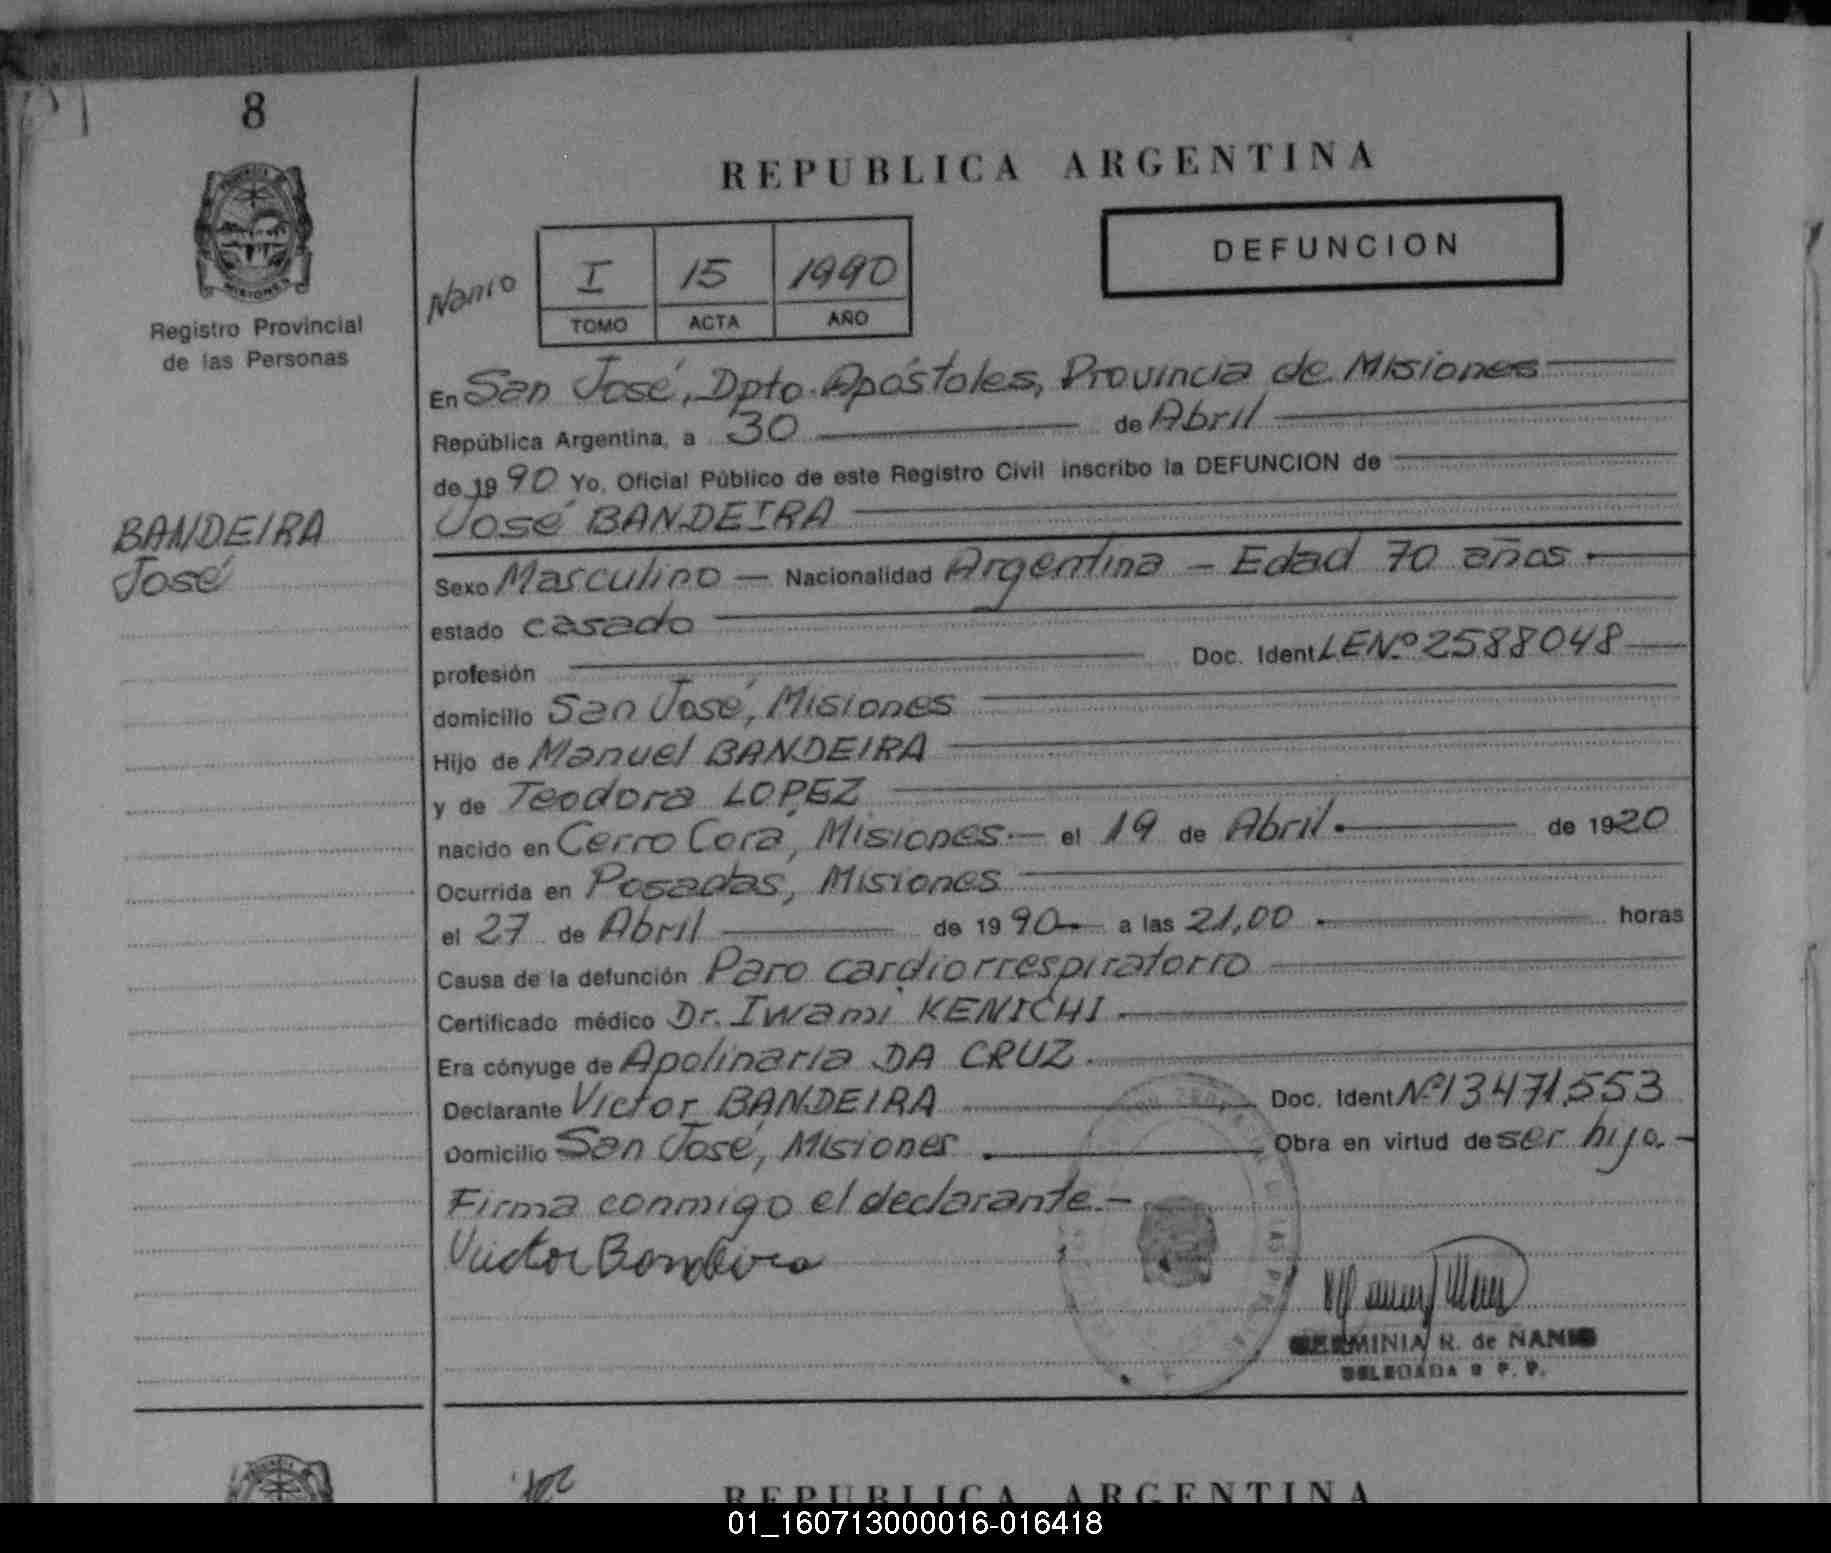 8
MISIONES
Registro Provincial
de las Personas
BANDEIRA
José
REPUBLICA ARGENTINA
DEFUNCION
Nanio
I 15 1990
TOMO ACTA AÑO
En San José, Dpto. Apóstoles, Provincia de Misiones
República Argentina, a 30 de Abril
de 1990 Yo, Oficial Público de este Registro Civil inscribo la DEFUNCION de
José BANDEIRA
Sexo Masculino — Nacionalidad Argentina — Edad 70 años.
estado casado
profesión Doc. Ident LENº 2588048
domicilio San José, Misiones
Hijo de Manuel BANDEIRA
y de Teodora LOPEZ
nacido en Cerro Corá, Misiones.— el 19 de Abril. de 1920
Ocurrida en Posadas, Misiones
el 27 de Abril de 1990 a las 21,00 . horas
Causa de la defunción Paro cardiorrespiratorio
Certificado médico Dr. Iwami KENICHI.
Era cónyuge de Apolinaria DA CRUZ.
Declarante Victor BANDEIRA Doc. Ident Nº 13471,553
Domicilio San José, Misiones . Obra en virtud de ser hijo.-
Firma conmigo el declarante.-
Victor Bandeira
HERMINIA R. de NANIO
DELEGADA R P. P.
REPUBLICA ARGENTINA
01_160713000016-016418